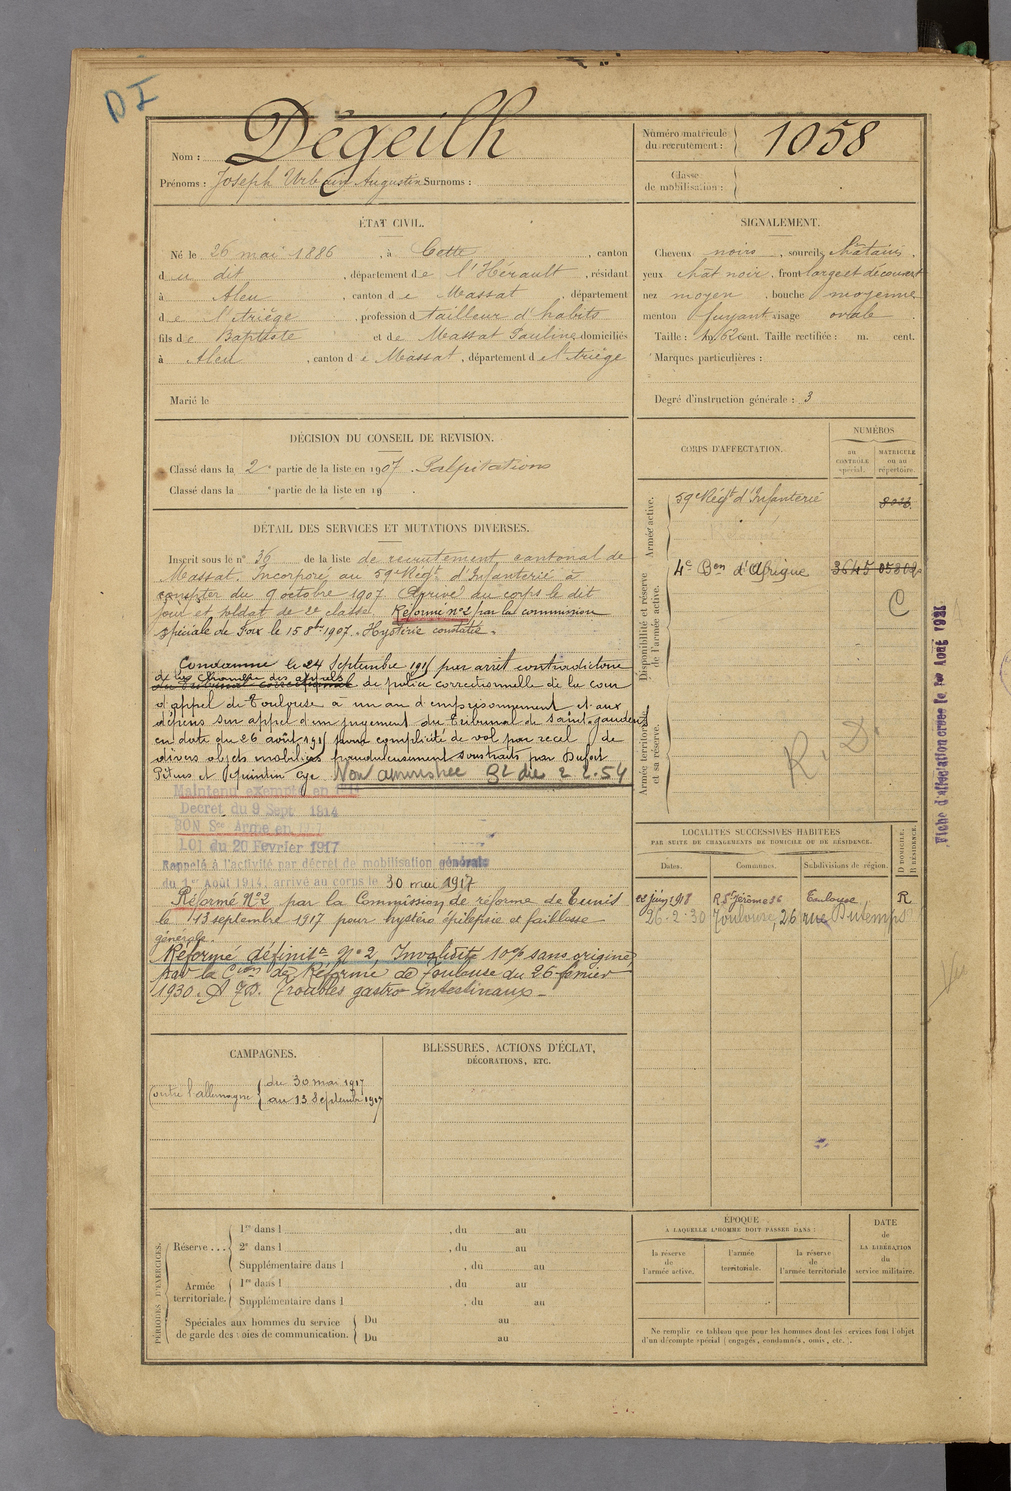 DI
Nom : Dégeilh
Prénoms : Joseph Urbain Augustin Surnoms :
Numéro matricule du recrutement : 1058
Classe de mobilisation :
ÉTAT CIVIL.
Né le 26 mai 1886, à Cette, canton
du dit, département de l'Hérault, résidant
à Aleu, canton de Massat, département
de l'Ariège, profession d tailleur d'habits
fils de Baptiste et de Massat Pauline domiciliés
à Aleu, canton de Massat, département de l'Ariège
Marié le
SIGNALEMENT.
Cheveux noirs, sourcils châtains,
yeux chât noir, front large et découvert
nez moyen, bouche moyenne
menton fuyant visage ovale.
Taille : 1m 62 cent. Taille rectifiée : m. cent.
Marques particulières :
Degré d'instruction générale : 3
DÉCISION DU CONSEIL DE REVISION.
Classé dans la 2e partie de la liste en 1907. Palpitations
Classé dans la e partie de la liste en 19 .
DÉTAIL DES SERVICES ET MUTATIONS DIVERSES.
Inscrit sous le n° 36 de la liste de recrutement cantonal de
Massat. Incorporé au 59e Régt d'Infanterie à
compter du 9 octobre 1907. Arrivé au corps le dit
jour et soldat de 2e classe. Réformé n°2 par la commission
spéciale de Foix le 15 8bre 1907. Hystérie constatée.
Condamné le 24 Septembre 191 par arrêt contradictoire
de la Chambre des appels
du Tribunal correctionnel de police correctionnelle de la cour
d'appel de Toulouse à un an d'emprisonnement et aux
dépens sur appel d'un jugement du Tribunal de Saint-Gaudens
en date du 26 août 191 pour complicité de vol par recel de
divers objets mobiliers frauduleusement soustraits par Dufort
et Non amnistiée 2.2.54
Maintenu exempté en
Décret du 9 Sept 1914
BON Sce Armé en
LOI du 20 Février 1917
Rappelé à l'activité par décret de mobilisation générale
du 1er Août 1914, arrivé au corps le 30 mai 1917
Réformé N°2 par la Commission de réforme de Tunis
le 13 septembre 1917 pour hystéro épilepsie et faiblesse
générale.
Réformé définitt N°2 Invalidité 10% sans origine
par la Cion de Réforme de Toulouse du 26 février
1930. Troubles gastro-intestinaux -
CORPS D'AFFECTATION.
NUMÉROS
au CONTRÔLE spécial.
MATRICULE ou au répertoire.
Armée active.
59e Régt d'Infanterie 8033
Disponibilité et réserve de l'armée active.
4e Bon d'Afrique 3645
C
Armée territoriale et sa réserve.
R. D.
Fiche d'affectation créée le 1er Août 1921
LOCALITÉS SUCCESSIVES HABITÉES
PAR SUITE DE CHANGEMENTS DE DOMICILE OU DE RÉSIDENCE.
Dates. Communes. Subdivisions de région. D DOMICILE. R RÉSIDENCE.
22 juin 1918 R. St Jérôme 36 Toulouse R
26-2-30 Toulouse, 26 rue Dutemps
CAMPAGNES.
Contre l'allemagne du 30 mai 1917
au 13 Septembre 1917
BLESSURES, ACTIONS D'ÉCLAT,
DÉCORATIONS, ETC.
PÉRIODES D'EXERCICES.
Réserve ...
1re dans l , du au
2e dans l , du au
Supplémentaire dans l , du au
Armée territoriale.
1re dans l , du au
Supplémentaire dans l , du au
Spéciales aux hommes du service
de garde des voies de communication.
Du au
Du au
ÉPOQUE
A LAQUELLE L'HOMME DOIT PASSER DANS :
la réserve de l'armée active.
l'armée territoriale.
la réserve de l'armée territoriale
DATE
de
LA LIBÉRATION
du
service militaire.
Ne remplir ce tableau que pour les hommes dont les services font l'objet
d'un décompte spécial (engagés, condamnés, omis, etc.).